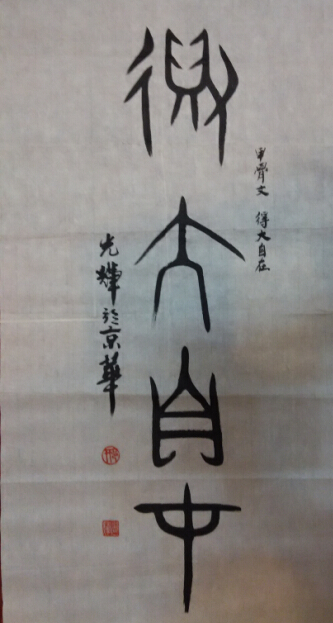 得大自在
甲骨文 得大自在
光辉於京華